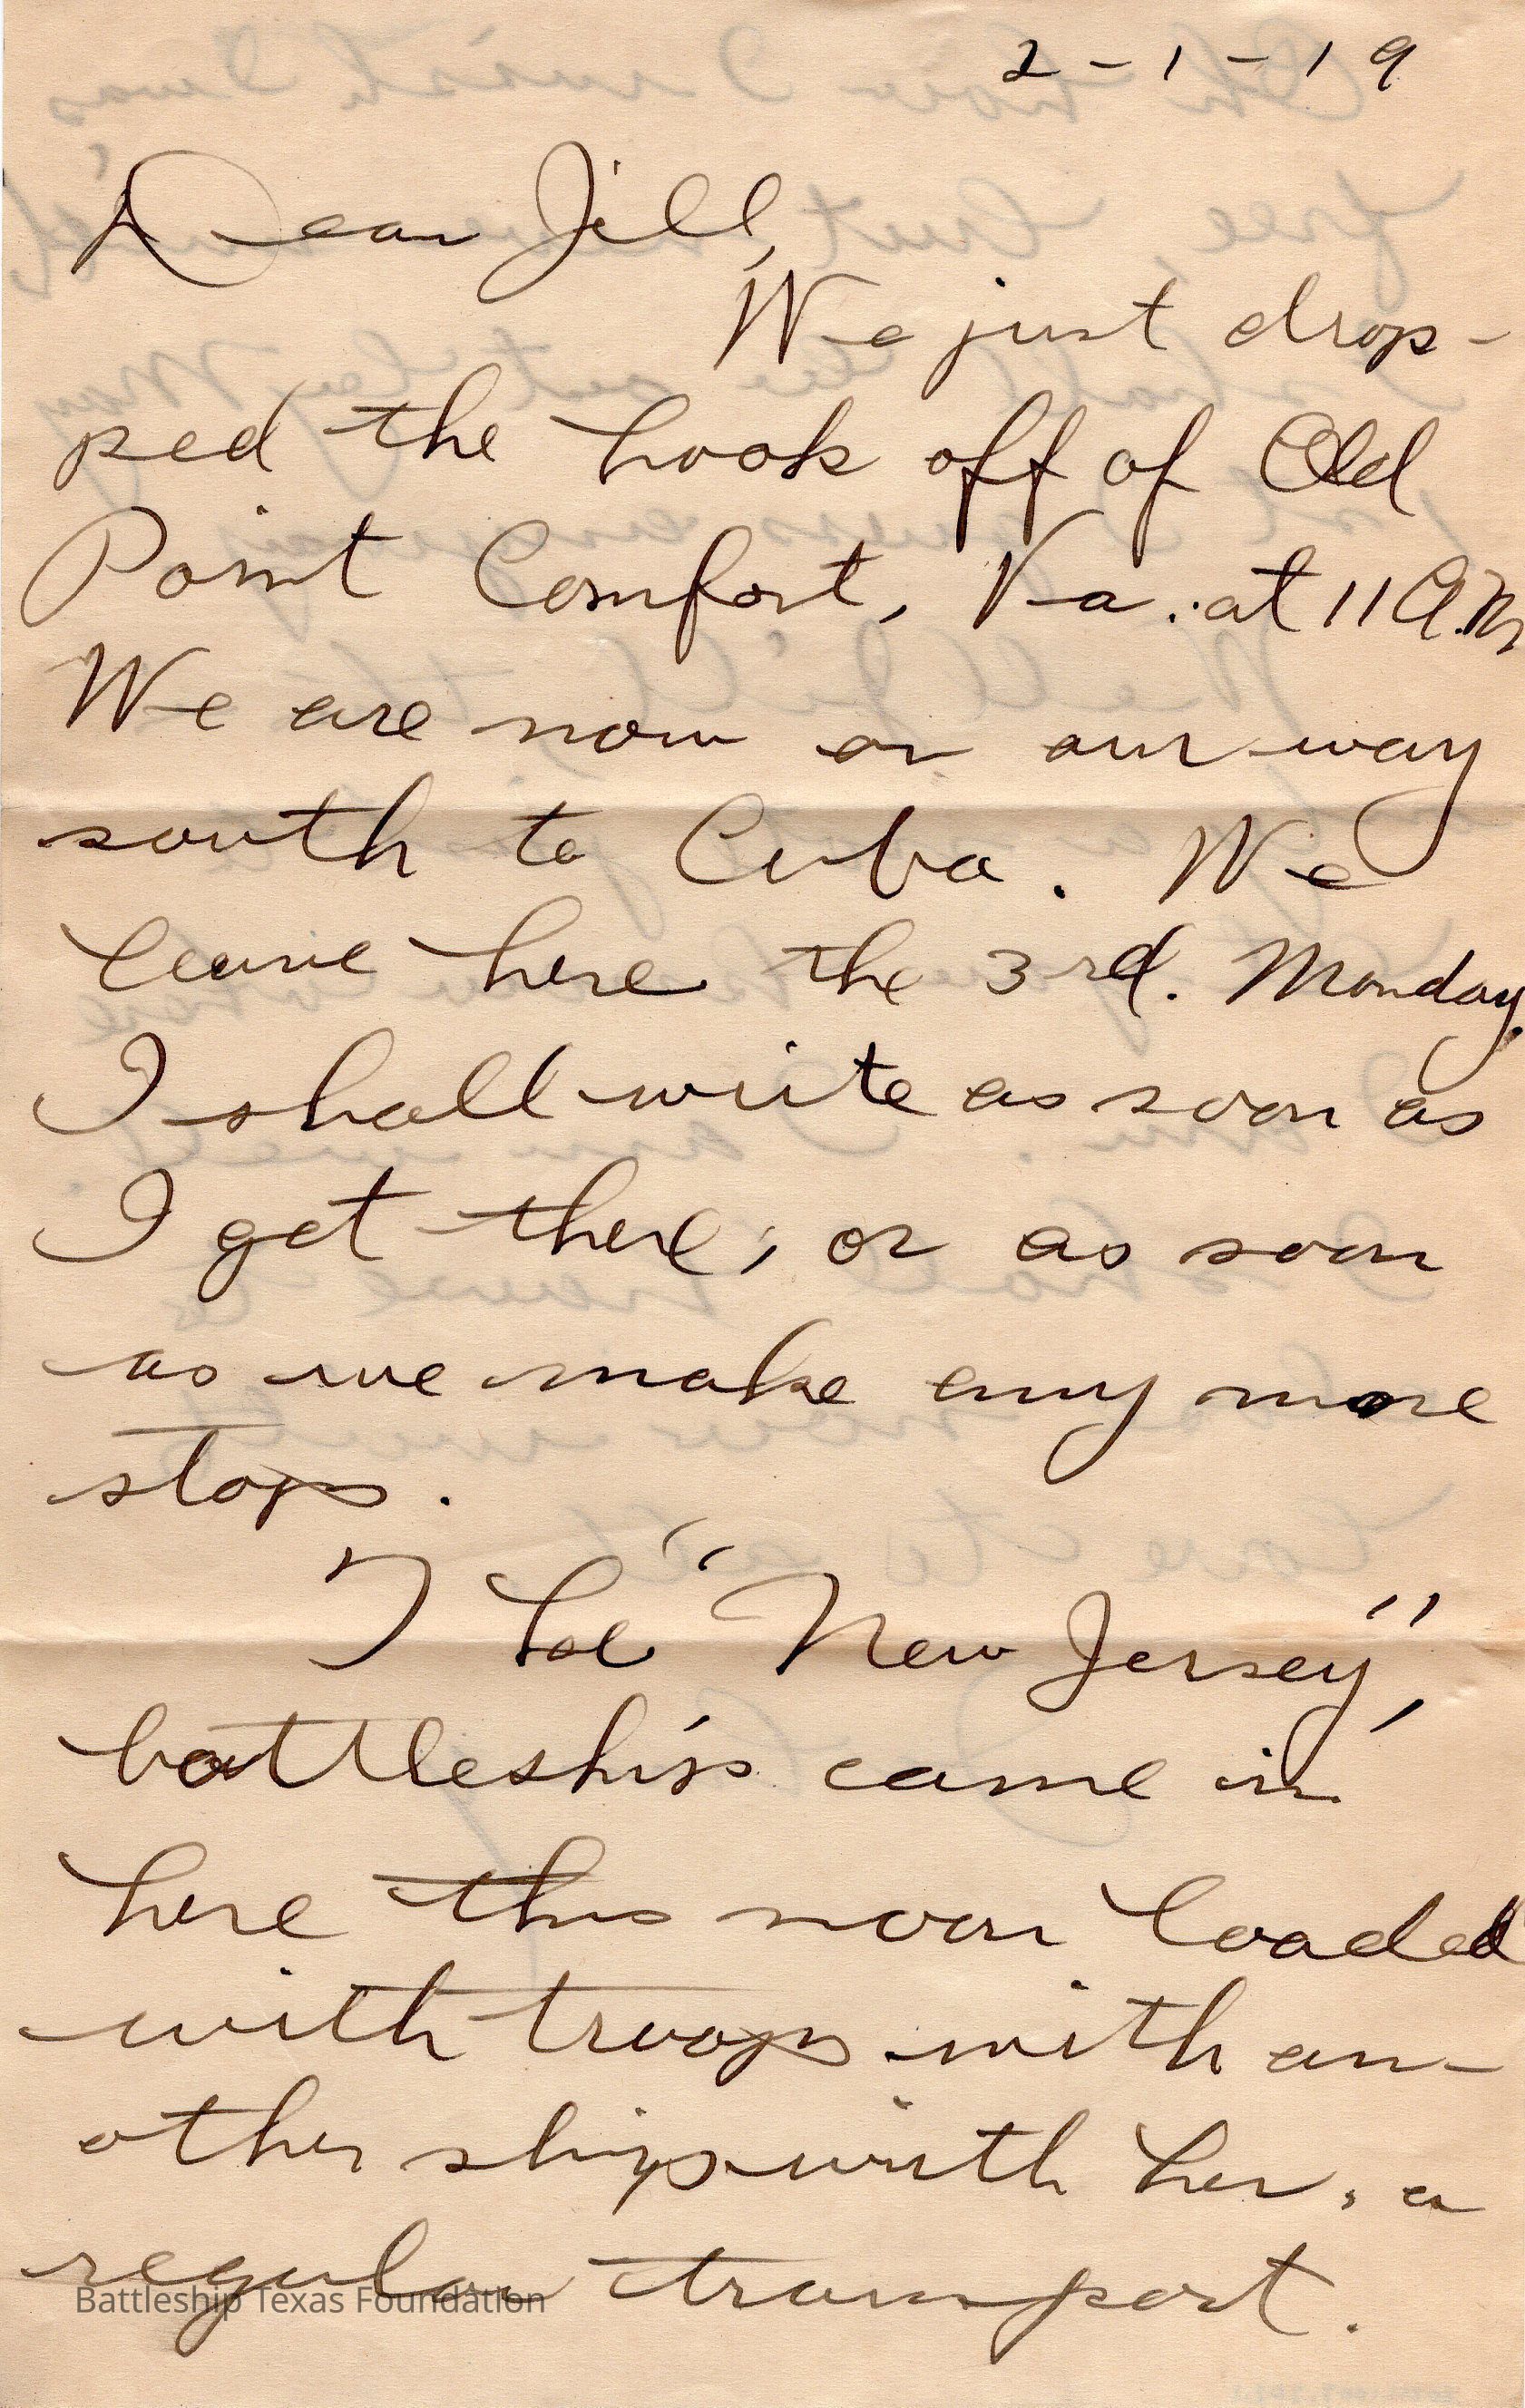 2-1-19
Dear Jill,
We just drop-
ped the hook off of Old
Point Comfort, Va. at 11 A.M
We are now on our way
south to Cuba. We
leave here the 3rd. Monday.
I shall write as soon as
I get there; or as soon
as we make any more
stops.
The "New Jersey",
battleship came in
here this noon loaded
with troops with an-
other ship with her, a
regular transport.
Battleship Texas Foundation